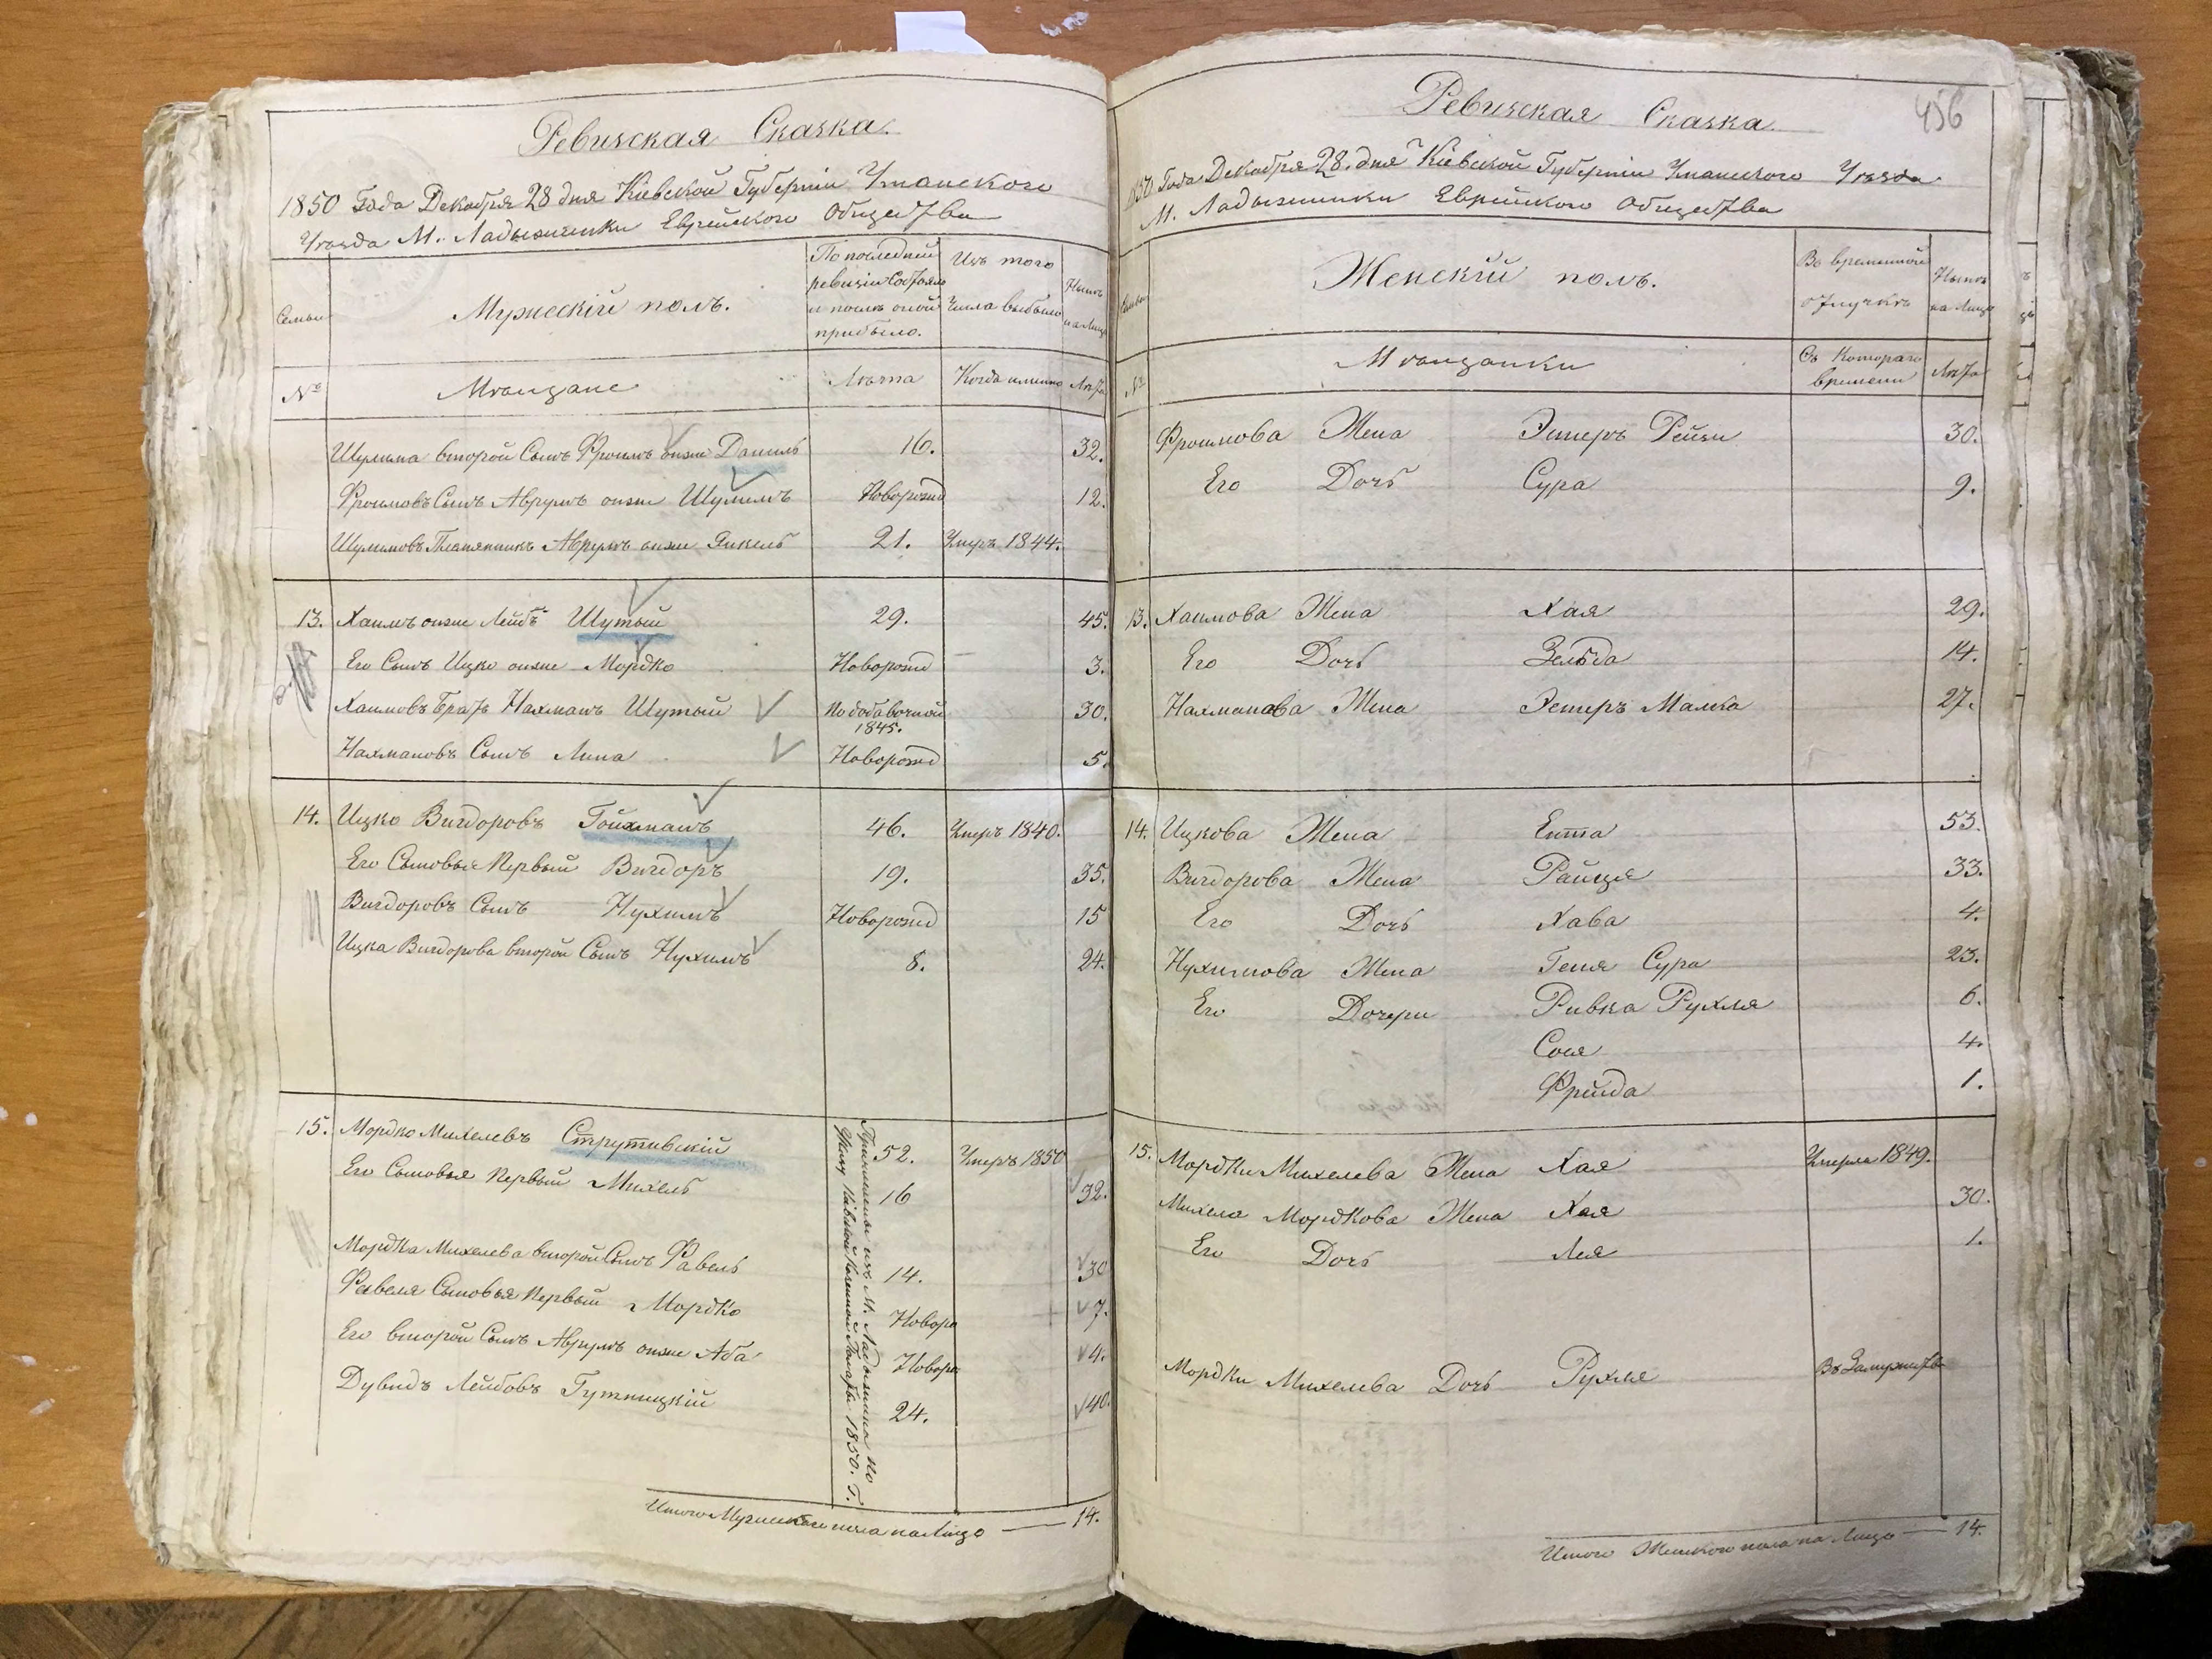 Ревизская Сказка.
1850 Года Декабря 28 дня Кіевской Губерніи Уманского
Уѣзда М. Ладыжинки Еврейского Общества
Семьи
Мужескій полъ.
По последней
ревизіи Состояло
и послѣ оной
прибыло.
Изъ того
Числа выбыло
Нынѣ
на Лицо
№
Мѣщане
Лѣта
Когда именно
Лѣта
Шулима второй Сынъ Фроимъ онже Даниль 16. 32.
Фроимовъ Сынъ Аврумъ онже Шулимъ Новорожд 12.
Шулимовъ Племянникъ Аврумъ онже Янкель 21. Умеръ 1844.
13. Хаимъ онже Лейбъ Шутый 29. 45.
Его Сынъ Ицко онже Мордко Новорожд 3.
Хаимовъ Братъ Нахманъ Шутый По добавочной 30.
1845.
Нахмановъ Сынъ Липа Новорожд 5.
14. Ицко Вигдоровъ Гойхманъ 46. Умеръ 1840.
Его Сыновья Первый Вигдоръ 19. 35.
Вигдоровъ Сынъ Нухимъ Новорожд 15
Ицка Вигдорова второй Сынъ Нухимъ 8. 24.
15. Мордко Михелевъ Струтивскій 52. Умеръ 1850
Его Сыновья Первый Михель 16 32.
Мордка Михелева второй Сынъ Фавель 14. 30
Фавеля Сыновья Первый Мордко Новоро 7.
Его второй Сынъ Аврумъ онже Аба Новоро 4.
Дувидъ Лейбовъ Гутницкій 24. 40.
Причислены изъ М. Ладыжинка по
Указу Кіевской Казенной Палаты 1850. Г.
Итого Мужеского пола на Лицо — 14.
456
Ревизская Сказка.
1850 Года Декабря 28. дня Кіевской Губерніи Уманского Уѣзда
М. Ладыжинки Еврейского Общества
Семьи
Женскій полъ.
Во временной
отлучкѣ
Нынѣ
на Лицо
№
Мѣщанки
Съ Котораго
времени
Лѣта
Фроимова Жена Эстеръ Рейзи 30.
Его Дочь Сура 9.
13. Хаимова Жена Хая 29.
Его Дочь Зельда 14.
Нахманова Жена Эстеръ Малка 27.
14. Ицкова Жена Ента 53.
Вигдорова Жена Райця 33.
Его Дочь Хава 4.
Нухимова Жена Геня Сура 23.
Его Дочери Ривка Рухля 6.
Сося 4.
Фрейда 1.
15. Мордки Михелева Жена Хая Умерла 1849.
Михеля Мордкова Жена Хая 30.
Его Дочь Лея 1.
Мордки Михелева Дочь Рухля Въ Замужствѣ
Итого Женского пола на Лицо — 14.